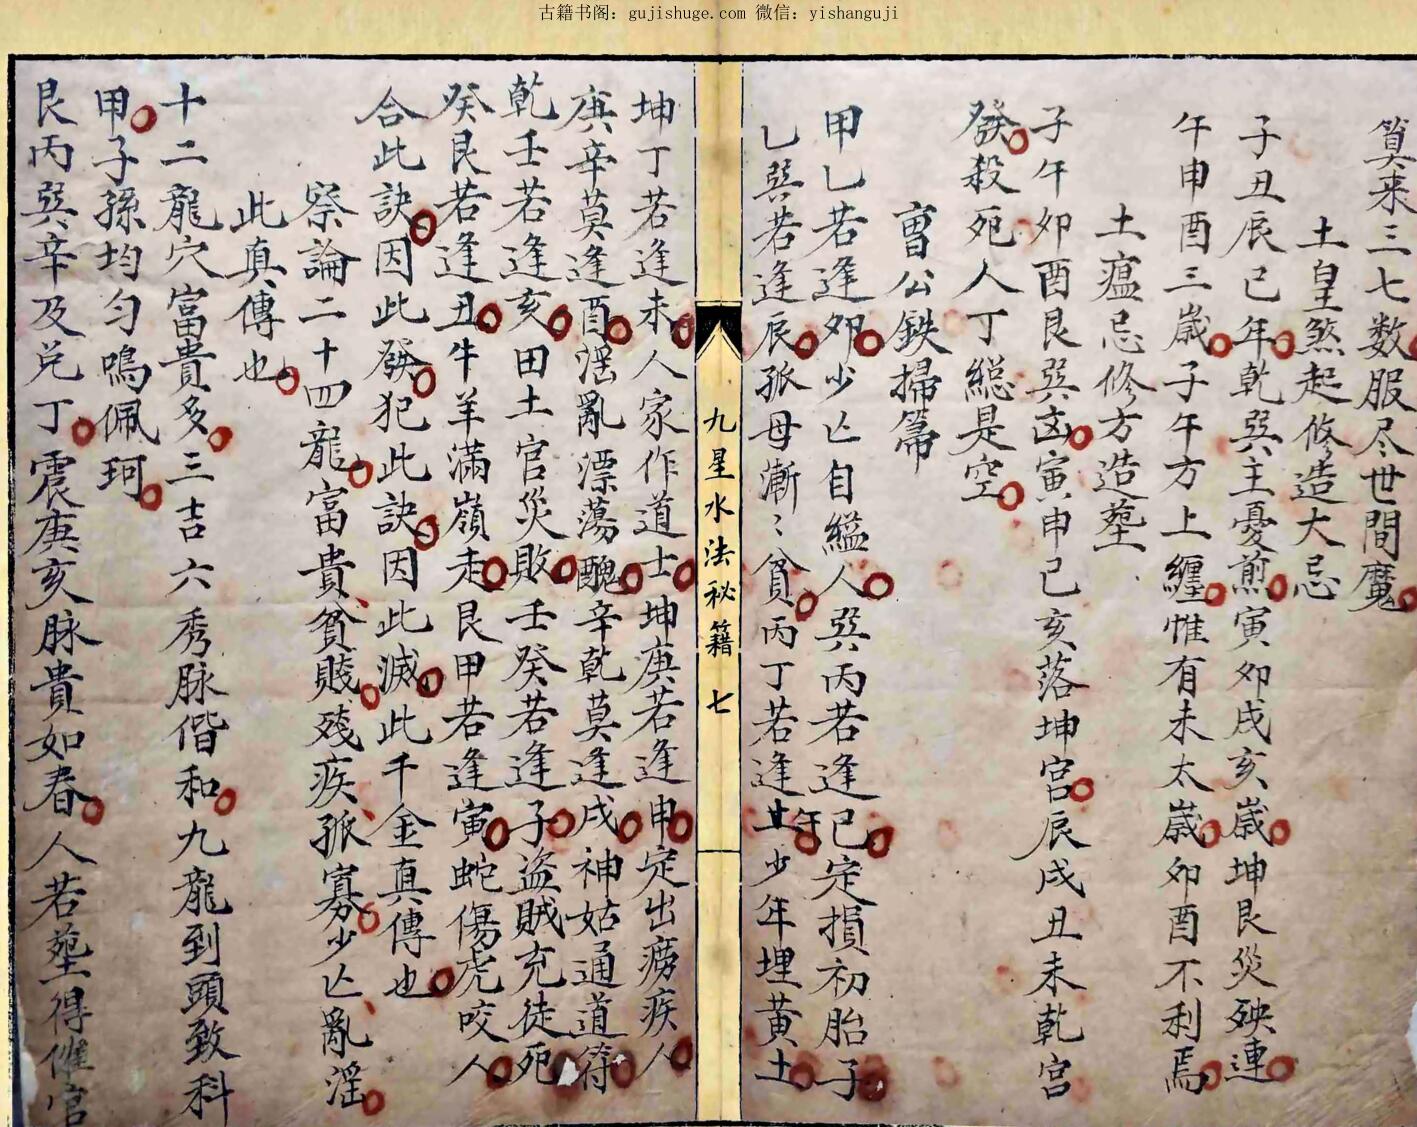 古籍书阁：gujishuge.com 微信：yishanguji
算来三七数服尽世間魔
土皇煞起修造大忌
子丑辰巳年乾巽主憂煎寅卯戌亥歲坤艮災殃連
午申酉三歲子午方上纏惟有未太歲卯酉不利焉
土瘟忌修方造塟
子午卯酉艮巽凶寅申巳亥落坤宮辰戌丑未乾宮
發殺死人丁總是空
曹公鉄掃箒
甲乙若逢夘少亡自縊人巽丙若逢巳定損初胎子
乙巽若逢辰孤母漸〻貧丙丁若逢午少年埋黃土
九星水法秘籍 七
坤丁若逢未人家作道士坤庚若逢申定出癆疾人
庚辛莫逢酉滛亂漂蕩醜辛乾莫逢戌神姑通道符
乾壬若逢亥田土官災敗壬癸若逢子盜賊充徒死
癸艮若逢丑牛羊滿嶺走艮甲若逢寅蛇傷虎咬人
合此訣因此發犯此訣因此滅此千金真傳也
察論二十四龍富貴貧賤殘疾孤寡少亡亂滛
此真傳也
十二龍穴富貴多三吉六秀脉偕和九龍到頭致科
甲子孫均勻鳴佩珂
艮丙巽辛及兑丁震庚亥脉貴如春人若塟得催官